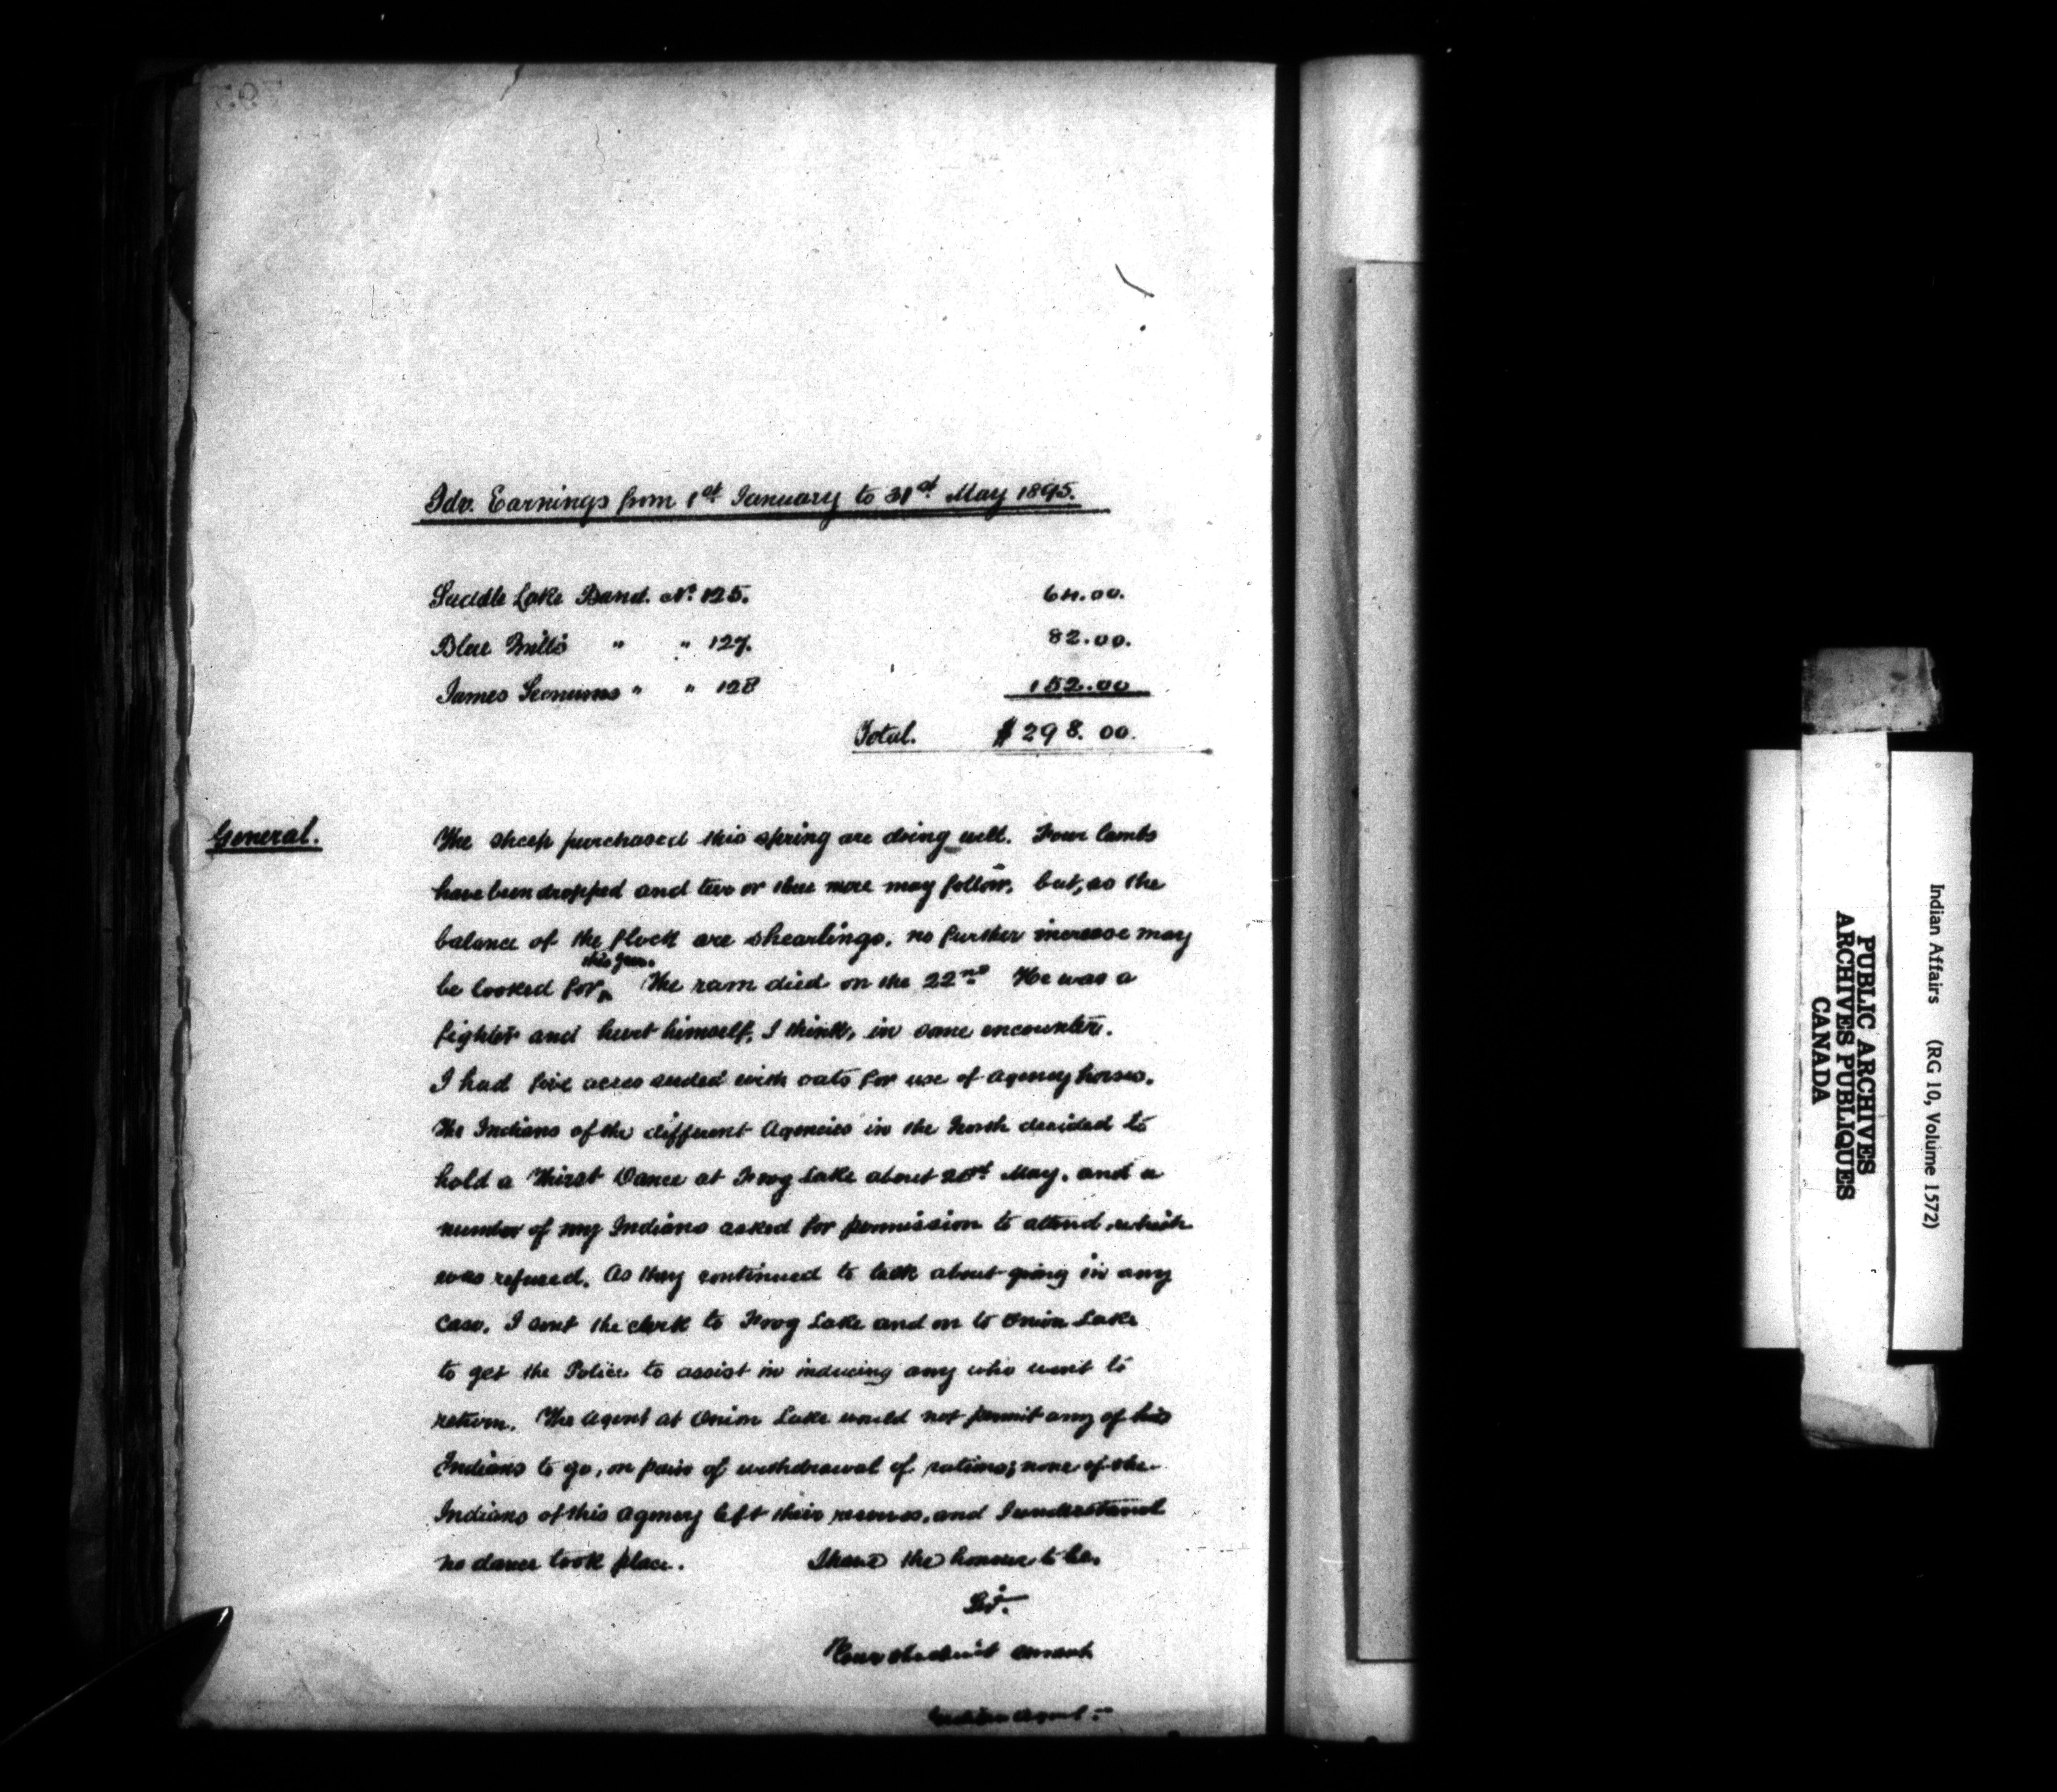 Idv. Earnings from 1st January to 31st May 1895.
Saddle Lake Band. No. 125. 64.00.
Blue Quills " " 127. 82.00.
James Seenums " " 128 152.00
Total. $298.00.
General.
The sheep purchased this spring are doing well. Four lambs
have been dropped and two or three more may follow, but, as the
balance of the flock are shearlings, no further increase may
this year.
be looked for. The ram died on the 22nd He was a
fighter and hurt himself, I think, in some encounter.
I had five acres seeded with oats for use of agency horses.
The Indians of the different Agencies in the North decided to
hold a Thirst Dance at Frog Lake about May, and a
number of my Indians asked for permission to attend, which
was refused. As they continued to talk about going in any
case, I sent the clerk to Frog Lake and on to Onion Lake
to get the Police to assist in inducing any who went to
return. The Agent at Onion Lake would not permit any of his
Indians to go, on pain of withdrawal of rations; none of the
Indians of this Agency left their reserves, and I understand
no dance took place. I have the honour to be,
Sir.
Your obedient servant
Indian Agent.
Indian Affairs (RG 10, Volume 1572)
PUBLIC ARCHIVES
ARCHIVES PUBLIQUES
CANADA